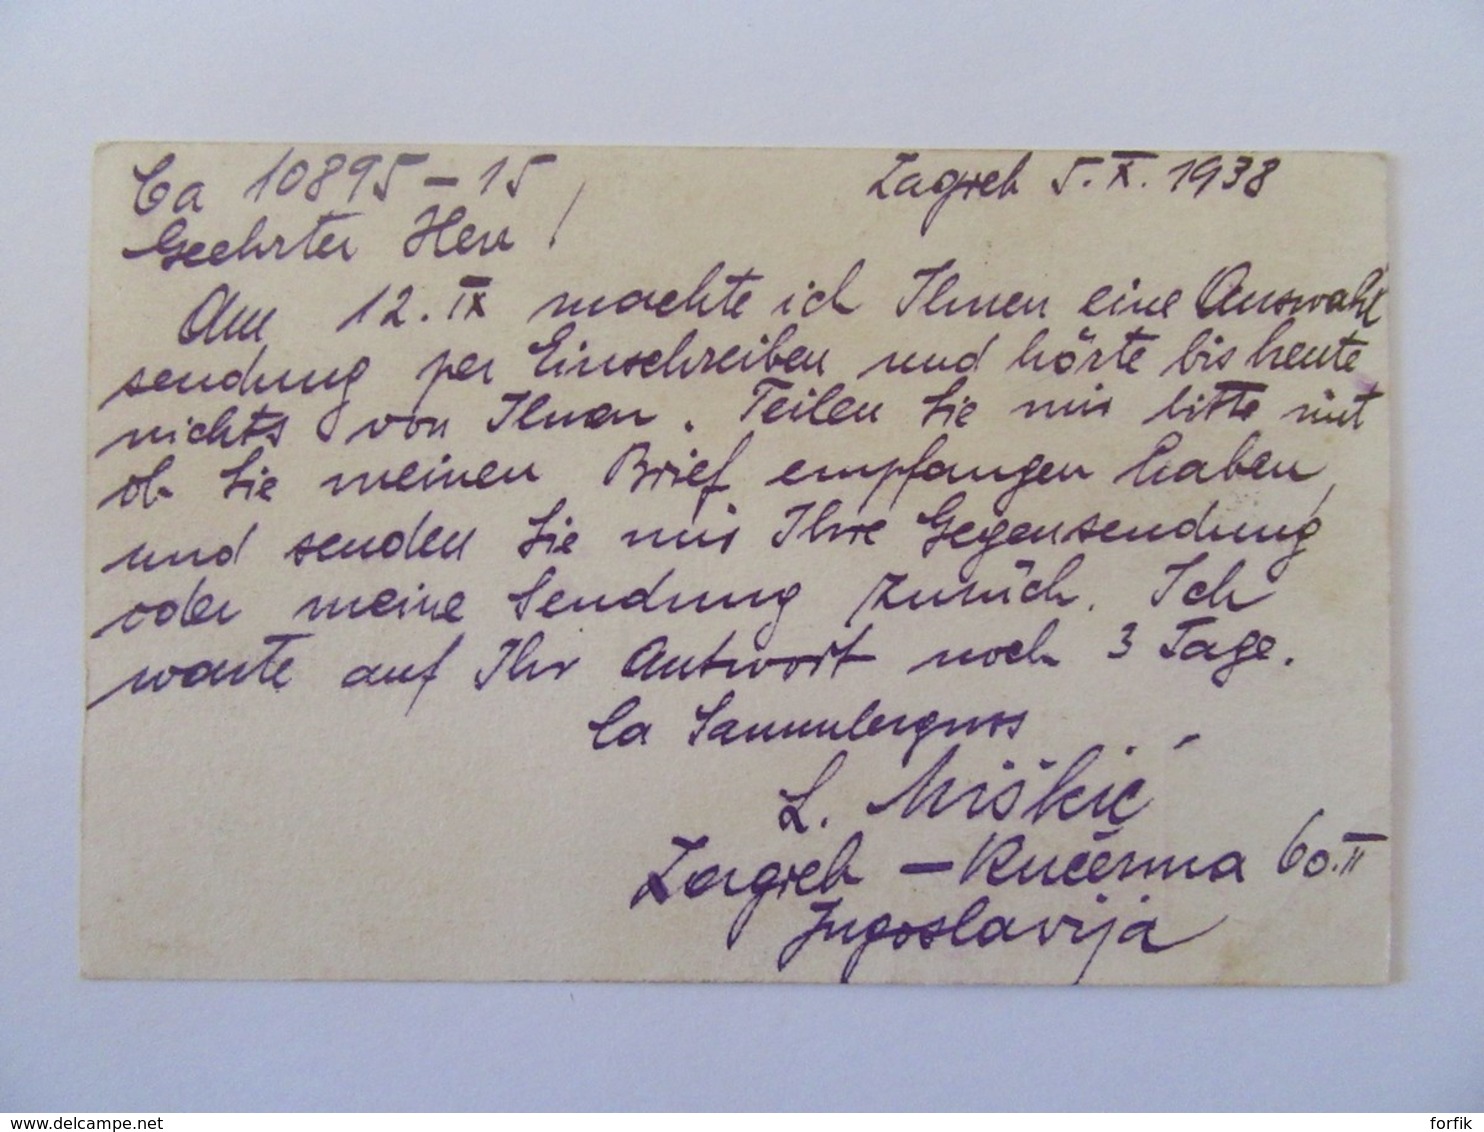 Ca 10895-15 Zagreb 5.X.1938
Geehrter Herr!
Am 12.IX machte ich Ihnen eine Auswahl
sendung per Einschreiben und hörte bis heute
nichts von Ihnen. Teilen Sie mir bitte mit
ob Sie meinen Brief empfangen haben,
und senden Sie mir Ihre Gegensendung
oder meine Sendung zurück. Ich
warte auf Ihr Antwort noch 3 Tage.
Ca Sammlergruss
L. Miškić
Zagreb - Kučerina 60.II
Jugoslavija
delcampe.net
forfik